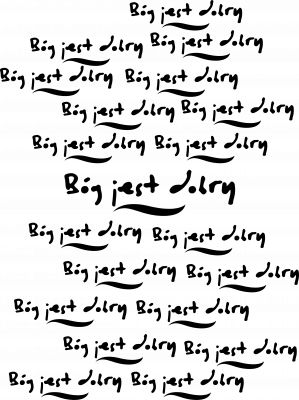 Bóg jest dobry
Bóg jest dobry Bóg jest dobry
Bóg jest dobry Bóg jest dobry
Bóg jest dobry Bóg jest dobry
Bóg jest dobry Bóg jest dobry
Bóg jest dobry
Bóg jest dobry Bóg jest dobry
Bóg jest dobry Bóg jest dobry
Bóg jest dobry Bóg jest dobry
Bóg jest dobry Bóg jest dobry
Bóg jest dobry Bóg jest dobry